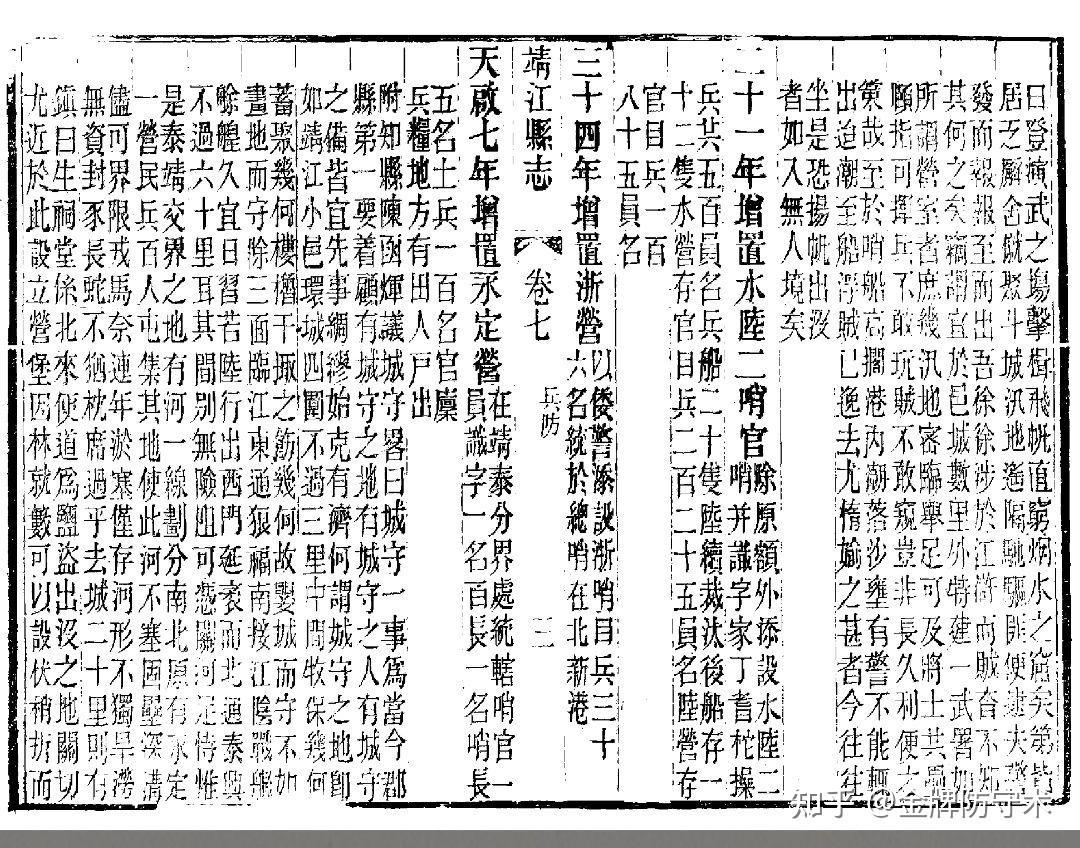 曰登演武之場擊楫飛帆直窮烟水之窟矣第皆
居乏廨舍僦聚斗城汛地遙隔馳驅匪便逮夫聲
發而報報至而出吾徐徐涉於江滸而賊杳不知
其何之矣竊謂宜於邑城數里外特建一武署如
所謂營室者庶幾汛地密臨舉足可及將士共屬
頤指可揮兵不敢玩賊不敢窺豈非長久利便之
策哉至於哨船高擱港內潮落沙壅有警不能輒
出迨潮至船浮賊已逸去尤惰媮之甚者今往往
坐是恐揚帆出沒
者如入無人境矣
二十一年增置水陸二哨官
除原額外添設水陸二
哨并識字家丁耆柁操
兵共五百員名兵船二十隻陸續裁汰後船存一
十二隻水營存官目兵二百二十五員名陸營存
官目兵一百
八十五員名
三十四年增置浙營
以倭警添設浙哨目兵三十
六名統於總哨在北新港
靖江縣志 卷七 兵防 三
天啟七年增置永定營
在靖泰分界處統轄哨官一
員識字一名百長一名哨長
五名土兵一百名官廩
兵糧地方有田人戶出
附知縣陳函煇議城守畧曰城守一事為當今郡
縣第一要着顧有城守之地有城守之人有城守
之備皆宜先事綢繆始克有濟何謂城守之地卽
如靖江小邑環城四圍不過三里中間牧保幾何
蓄聚幾何樓櫓干掫之飭幾何故嬰城而守不如
畫地而守除三面臨江東通狼福南接江陰戰艦
艅艎久宜日習若陸行出西門延袤而北通泰興
不過六十里耳其間別無險阻可憑關河足恃惟
是泰靖交界之地有河一線劃分南北原有永定
一營民兵百人屯集其地使此河不塞固壘深溝
儘可界限戎馬奈連年淤塞僅存河形不獨旱澇
無資封豕長蛇不猶枕席過乎去城二十里則有
鎮曰生祠堂係北來便道為鹽盜出沒之地關切
尤近於此設立營堡因林就藪可以設伏稍折而
知乎 @金牌防守术